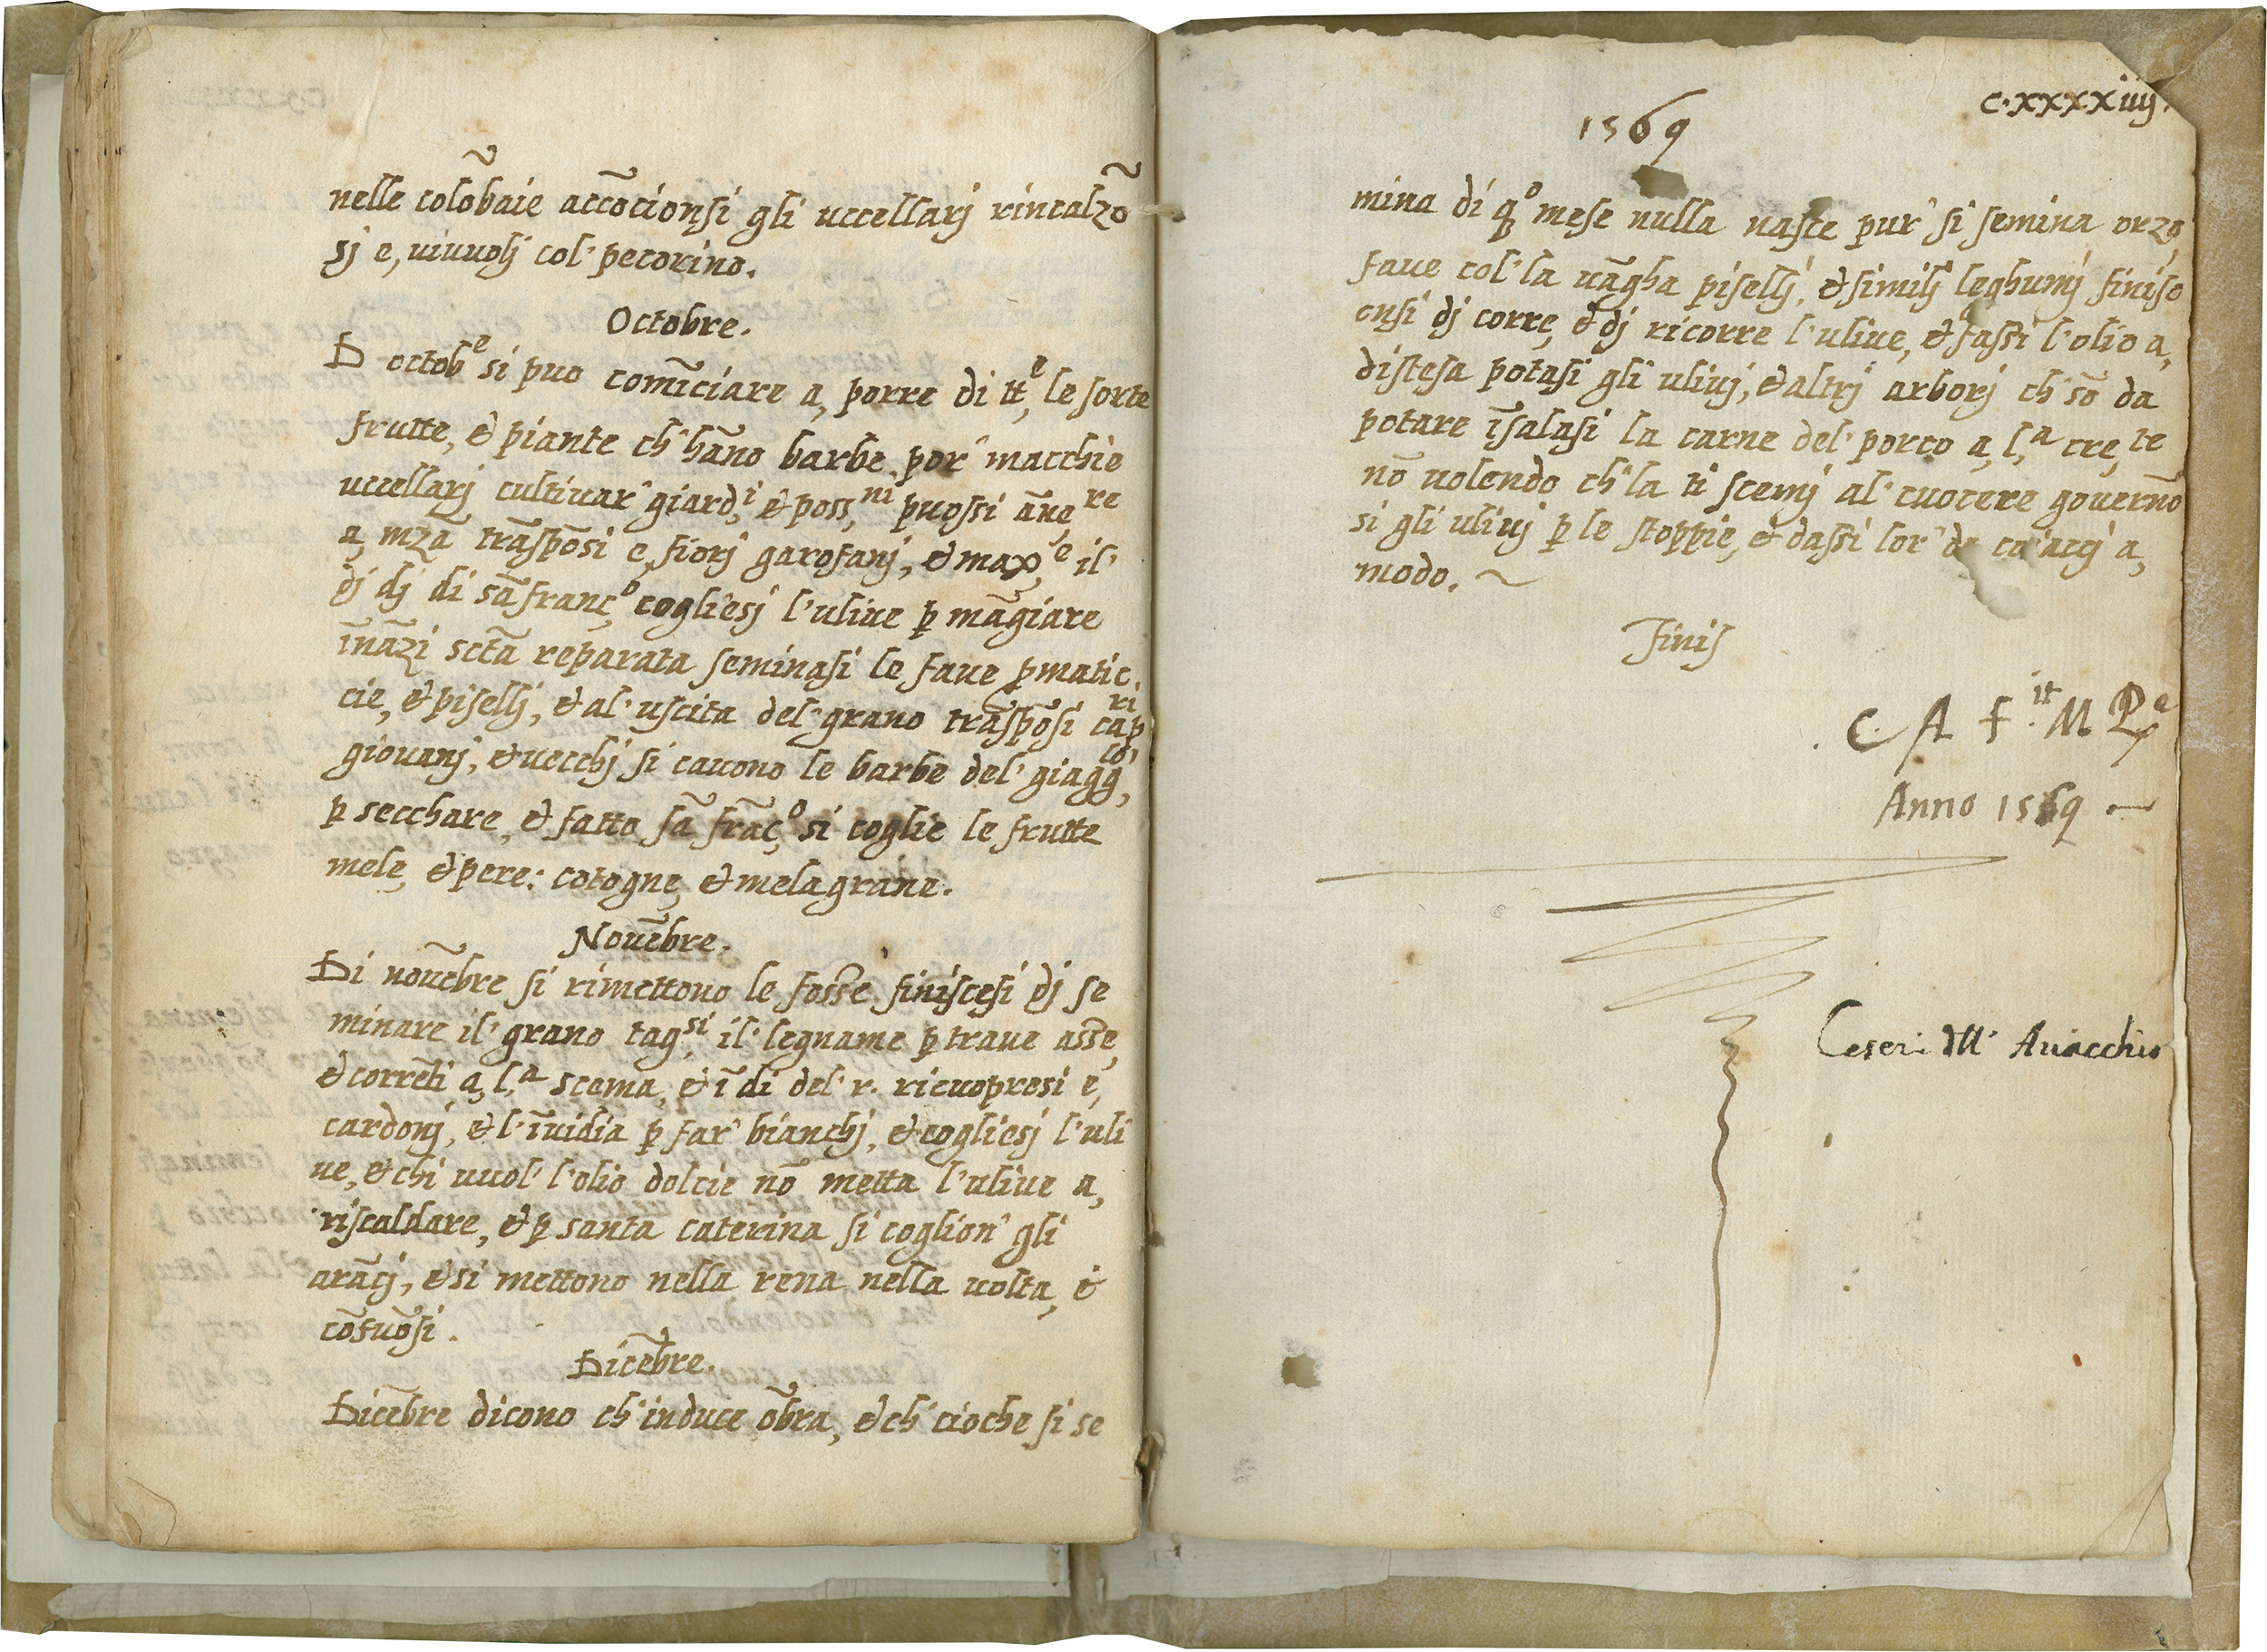 nelle colõbaie accõcionsi gli uccellarj rincalzõ
sj e, uiuuolj col' pecorino.
Octobre.
D octobᵉ si puo comĩciare a, porre di ttᵉ, le sorte
frutte, & piante ch' hãno barbe por' macchie
uccellarj cultiuar' giardⁱ, & possⁿⁱ, puossi ãneʳᵉ
a, mzã trãspõsi e, fiorj garofanj, & maxᵉ, il'
dj dj di sã francº, cogliesj l'uliue ꝑ mãgiare
ĩnãzi sctã reparata seminasi le faue ꝑmatic
cie, & pisellj, & al' uscita del' grano trãspõsi capʳⁱ
giouanj, & uecchj si cauono le barbe del' giaggˡᵒ',
ꝑ secchare, & fatto sã frãcº, si coglie le frutte
mele, & pere: cotogne, & mela grane.
Nouẽbre.
Di nouẽbre si rimettono le fosse finiscesi dj se
minare il' grano tagˢⁱ, il' legname ꝑ traue asse,
& correti a, l,ᵃ scema, & ĩ di del' r. ricuopresi e,
cardonj, & l'ĩuidia ꝑ far' bianchj, & cogliesj l'uli
ue, & chi uuol' l'olio dolcie nõ metta l'uliue a,
riscaldare, & ꝑ santa caterina si coglion' gli
arãcj, & si mettono nella rena nella uolta, &
cõfuõsi.
Dicẽbre.
Dicẽbre dicono ch' induce õbra, & ch' cioche si se
c.xxxxiiij.
1569
mina di qº mese nulla nasce pur' si semina orzo
faue col' la uãgha pisellj, & similj leghumj finisc
onsi dj corre, & dj ricorre l'uliue, & fassi l'olio a,
distesa potasi gli uliuj, & altrj arborj ch' sõ da
potare ĩsalasi la carne del' porco a, l,ᵃ cre,ᵗᵉ
nõ uolendo ch' la ti scemj al' cuocere gouernõ
si gli uliuj ꝑ le stoppie, & dassi lor' de a,
modo. ~
Finis
C. A f.ⁱᵗ M Pᵉ
Anno 1569
Ceseri Auacchio